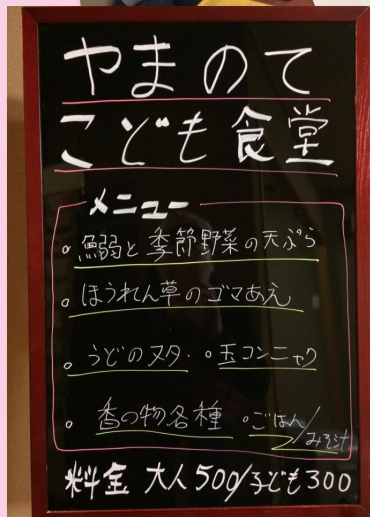 やまのて
こども食堂
メニュー
。鰯と季節野菜の天ぷら
。ほうれん草のゴマあえ
。うどのヌタ・。玉コンニャク
。香の物各種 。ごはん/みそ汁
料金 大人500/子ども300